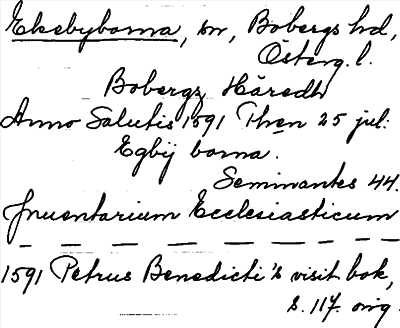 Ekebyborna, sn, Bobergs hd,
Österg. l.
Bobergz Häredh
Anno Salutis 1591 Then 25 jul:
Egbÿ borna.
Seminantes 44.
Jnuentarium Ecclesiasticum
1591 Petrus Benedicti's visit bok,
s. 117. orig.